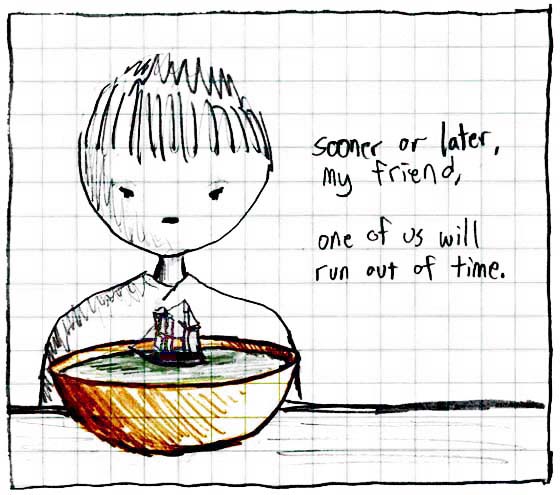 sooner or later,
my friend,
one of us will
run out of time.